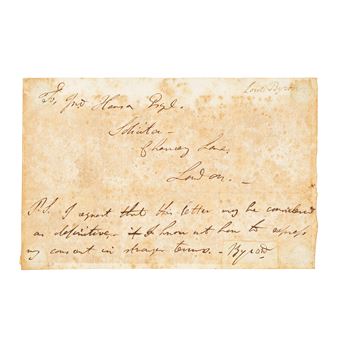 Lord Byron
To, Jno Hanson Esqre.
Solicitor -
Chancery Lane,
London. -
P.S. I request that this letter may be considered
as definitive. - I know not how to express
my consent in stronger terms. - Byron